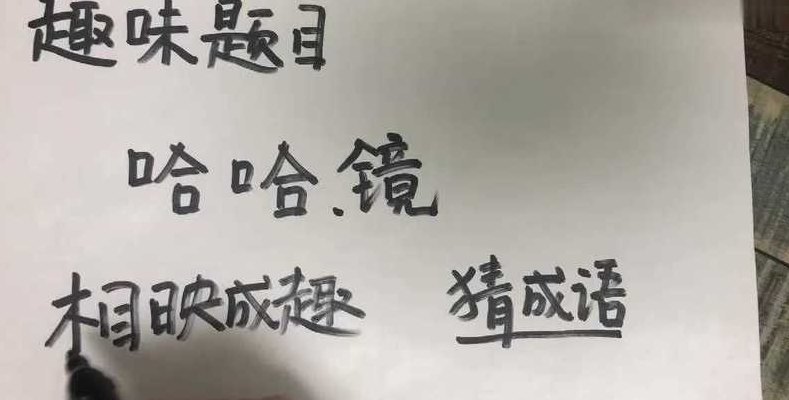 趣味题目
哈哈.镜
相映成趣 猜成语